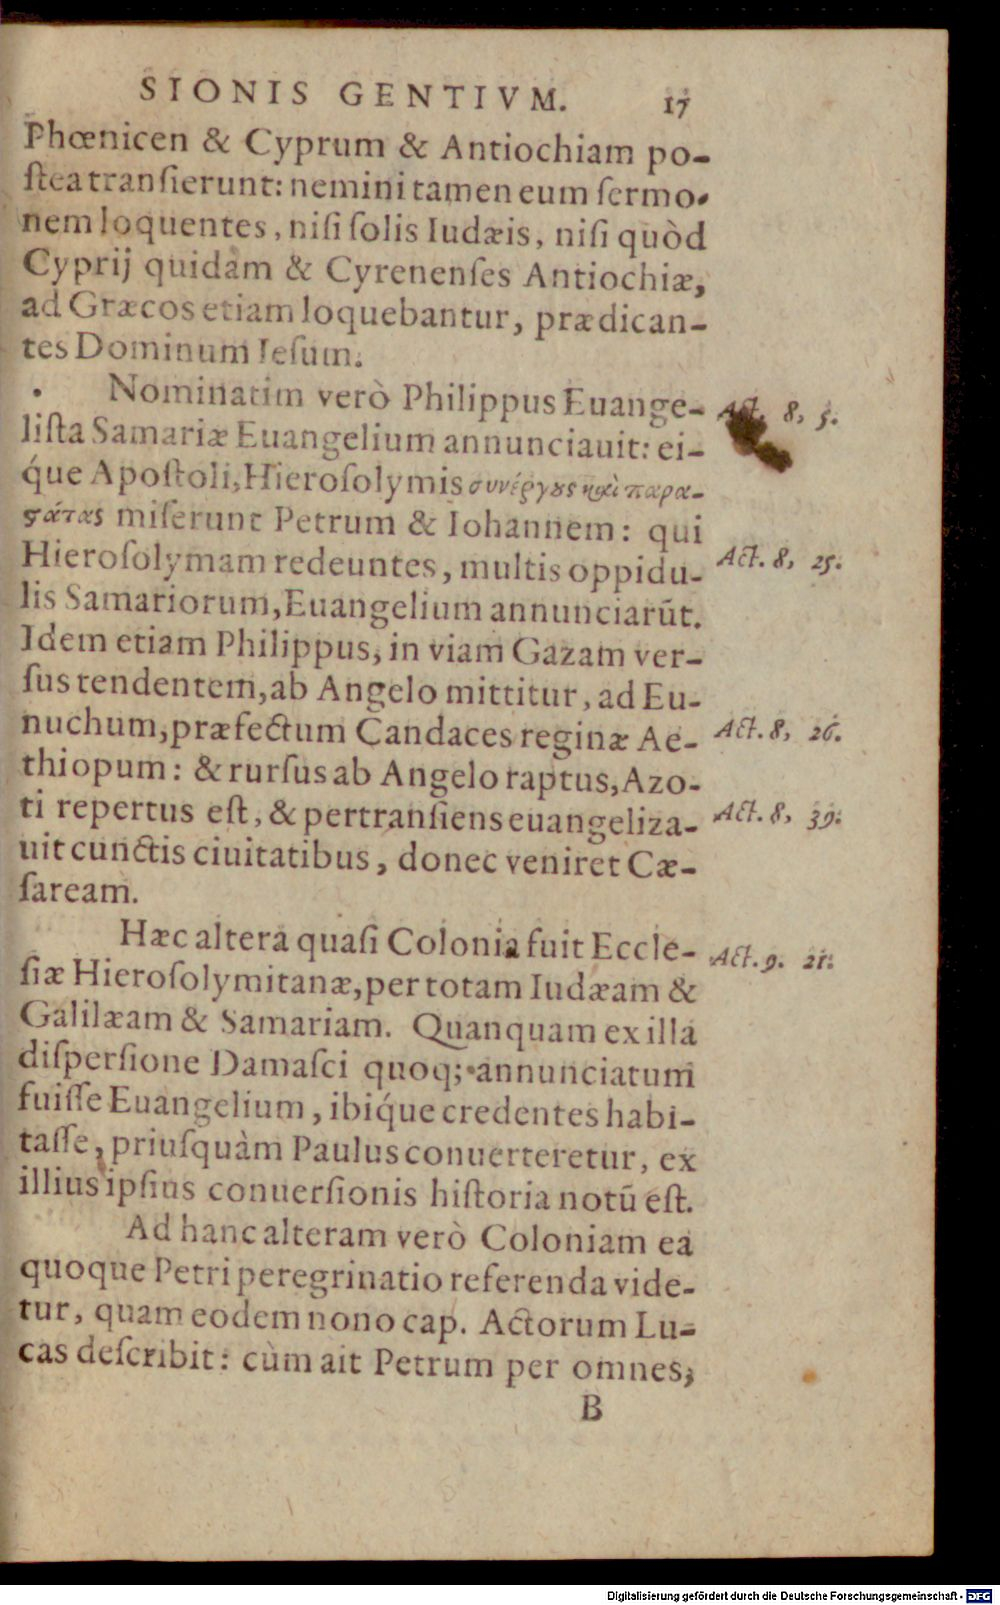 SIONIS GENTIVM. 17
Phœnicen & Cyprum & Antiochiam po-
ſtea tranſierunt: nemini tamen eum ſermo-
nem loquentes, niſi ſolis Iudæis, niſi quòd
Cyprij quidam & Cyrenenſes Antiochiæ,
ad Græcos etiam loquebantur, prædican-
tes Dominum Ieſum.
Nominatim verò Philippus Euange- Act. 8, 5.
liſta Samariæ Euangelium annunciauit: ei-
q́ue Apoſtoli, Hieroſolymis συνέργȣς καὶ παρα-
ϛάτας miſerunt Petrum & Iohannem: qui
Hieroſolymam redeuntes, multis oppidu- Act. 8, 25.
lis Samariorum, Euangelium annunciarūt.
Idem etiam Philippus, in viam Gazam ver-
ſus tendentem, ab Angelo mittitur, ad Eu-
nuchum, præfectum Candaces reginæ Ae- Act. 8, 26.
thiopum: & rurſus ab Angelo raptus, Azo-
ti repertus eſt, & pertranſiens euangeliza- Act. 8, 39.
uit cunctis ciuitatibus, donec veniret Cæ-
ſaream.
Hæc altera quaſi Colonia fuit Eccle- Act. 9. 21.
ſiæ Hieroſolymitanæ, per totam Iudæam &
Galilæam & Samariam. Quanquam ex illa
diſperſione Damaſci quoq; annunciatum
fuiſſe Euangelium, ibiq́ue credentes habi-
taſſe, priuſquàm Paulus conuerteretur, ex
illius ipſius conuerſionis hiſtoria notū eſt.
Ad hanc alteram verò Coloniam ea
quoque Petri peregrinatio referenda vide-
tur, quam eodem nono cap. Actorum Lu-
cas deſcribit: cùm ait Petrum per omnes,
B
Digitalisierung gefördert durch die Deutsche Forschungsgemeinschaft - DFG